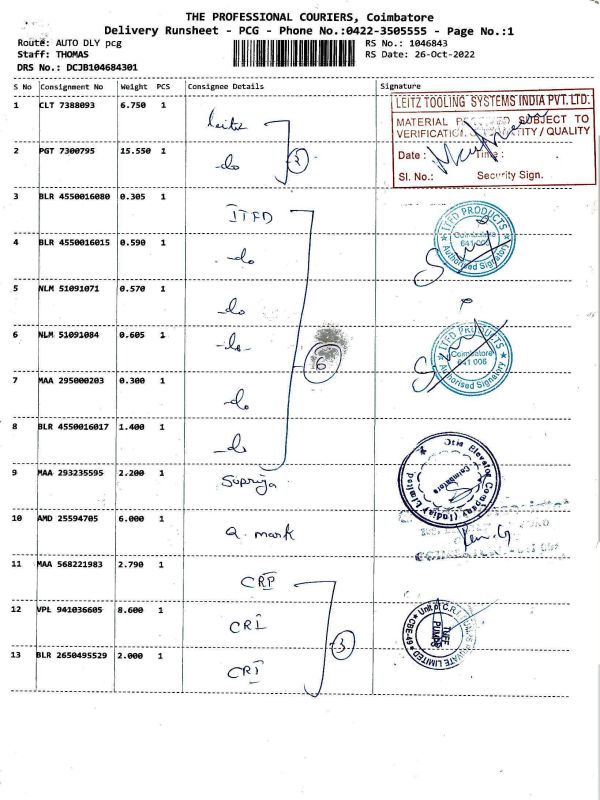 THE PROFESSIONAL COURIERS, Coimbatore
Delivery Runsheet - PCG - Phone No.:0422-3505555 - Page No.:1
Route: AUTO DLY pcg
RS No.: 1046843
Staff: THOMAS
RS Date: 26-Oct-2022
DRS No.: DCJB104684301
S No Consignment No Weight PCS Consignee Details Signature
1 CLT 7388093 6.750 1 Leitz
LEITZ TOOLING SYSTEMS INDIA PVT. LTD.
MATERIAL RECEIVED SUBJECT TO
VERIFICATION QUANTITY / QUALITY
Date : Time :
Sl. No.: Security Sign.
2 PGT 7300795 15.550 1 -do 2
3 BLR 4550016080 0.305 1 ITFD
ITFD PRODUCTS
Coimbatore
641 006
Authorised Signatory
4 BLR 4550016015 0.590 1 -do
5 NLM 51091071 0.570 1 -do
6 NLM 51091084 0.605 1 -do- 6
ITFD PRODUCTS
Coimbatore
641 006
Authorised Signatory
7 MAA 295000203 0.300 1 -do
8 BLR 4550016017 1.400 1 -do
9 MAA 293235595 2.200 1 Supriya
Otis Elevator Company (India) Limited
Coimbatore
10 AMD 25594705 6.000 1 Q. mark
11 MAA 568221983 2.790 1 CRP
12 VPL 941036605 8.600 1 CRI 3
Unit of C.R.I. PUMPS PRIVATE LIMITED
CBE-49
TUFF
PUMPS
13 BLR 2650495529 2.000 1 CRI